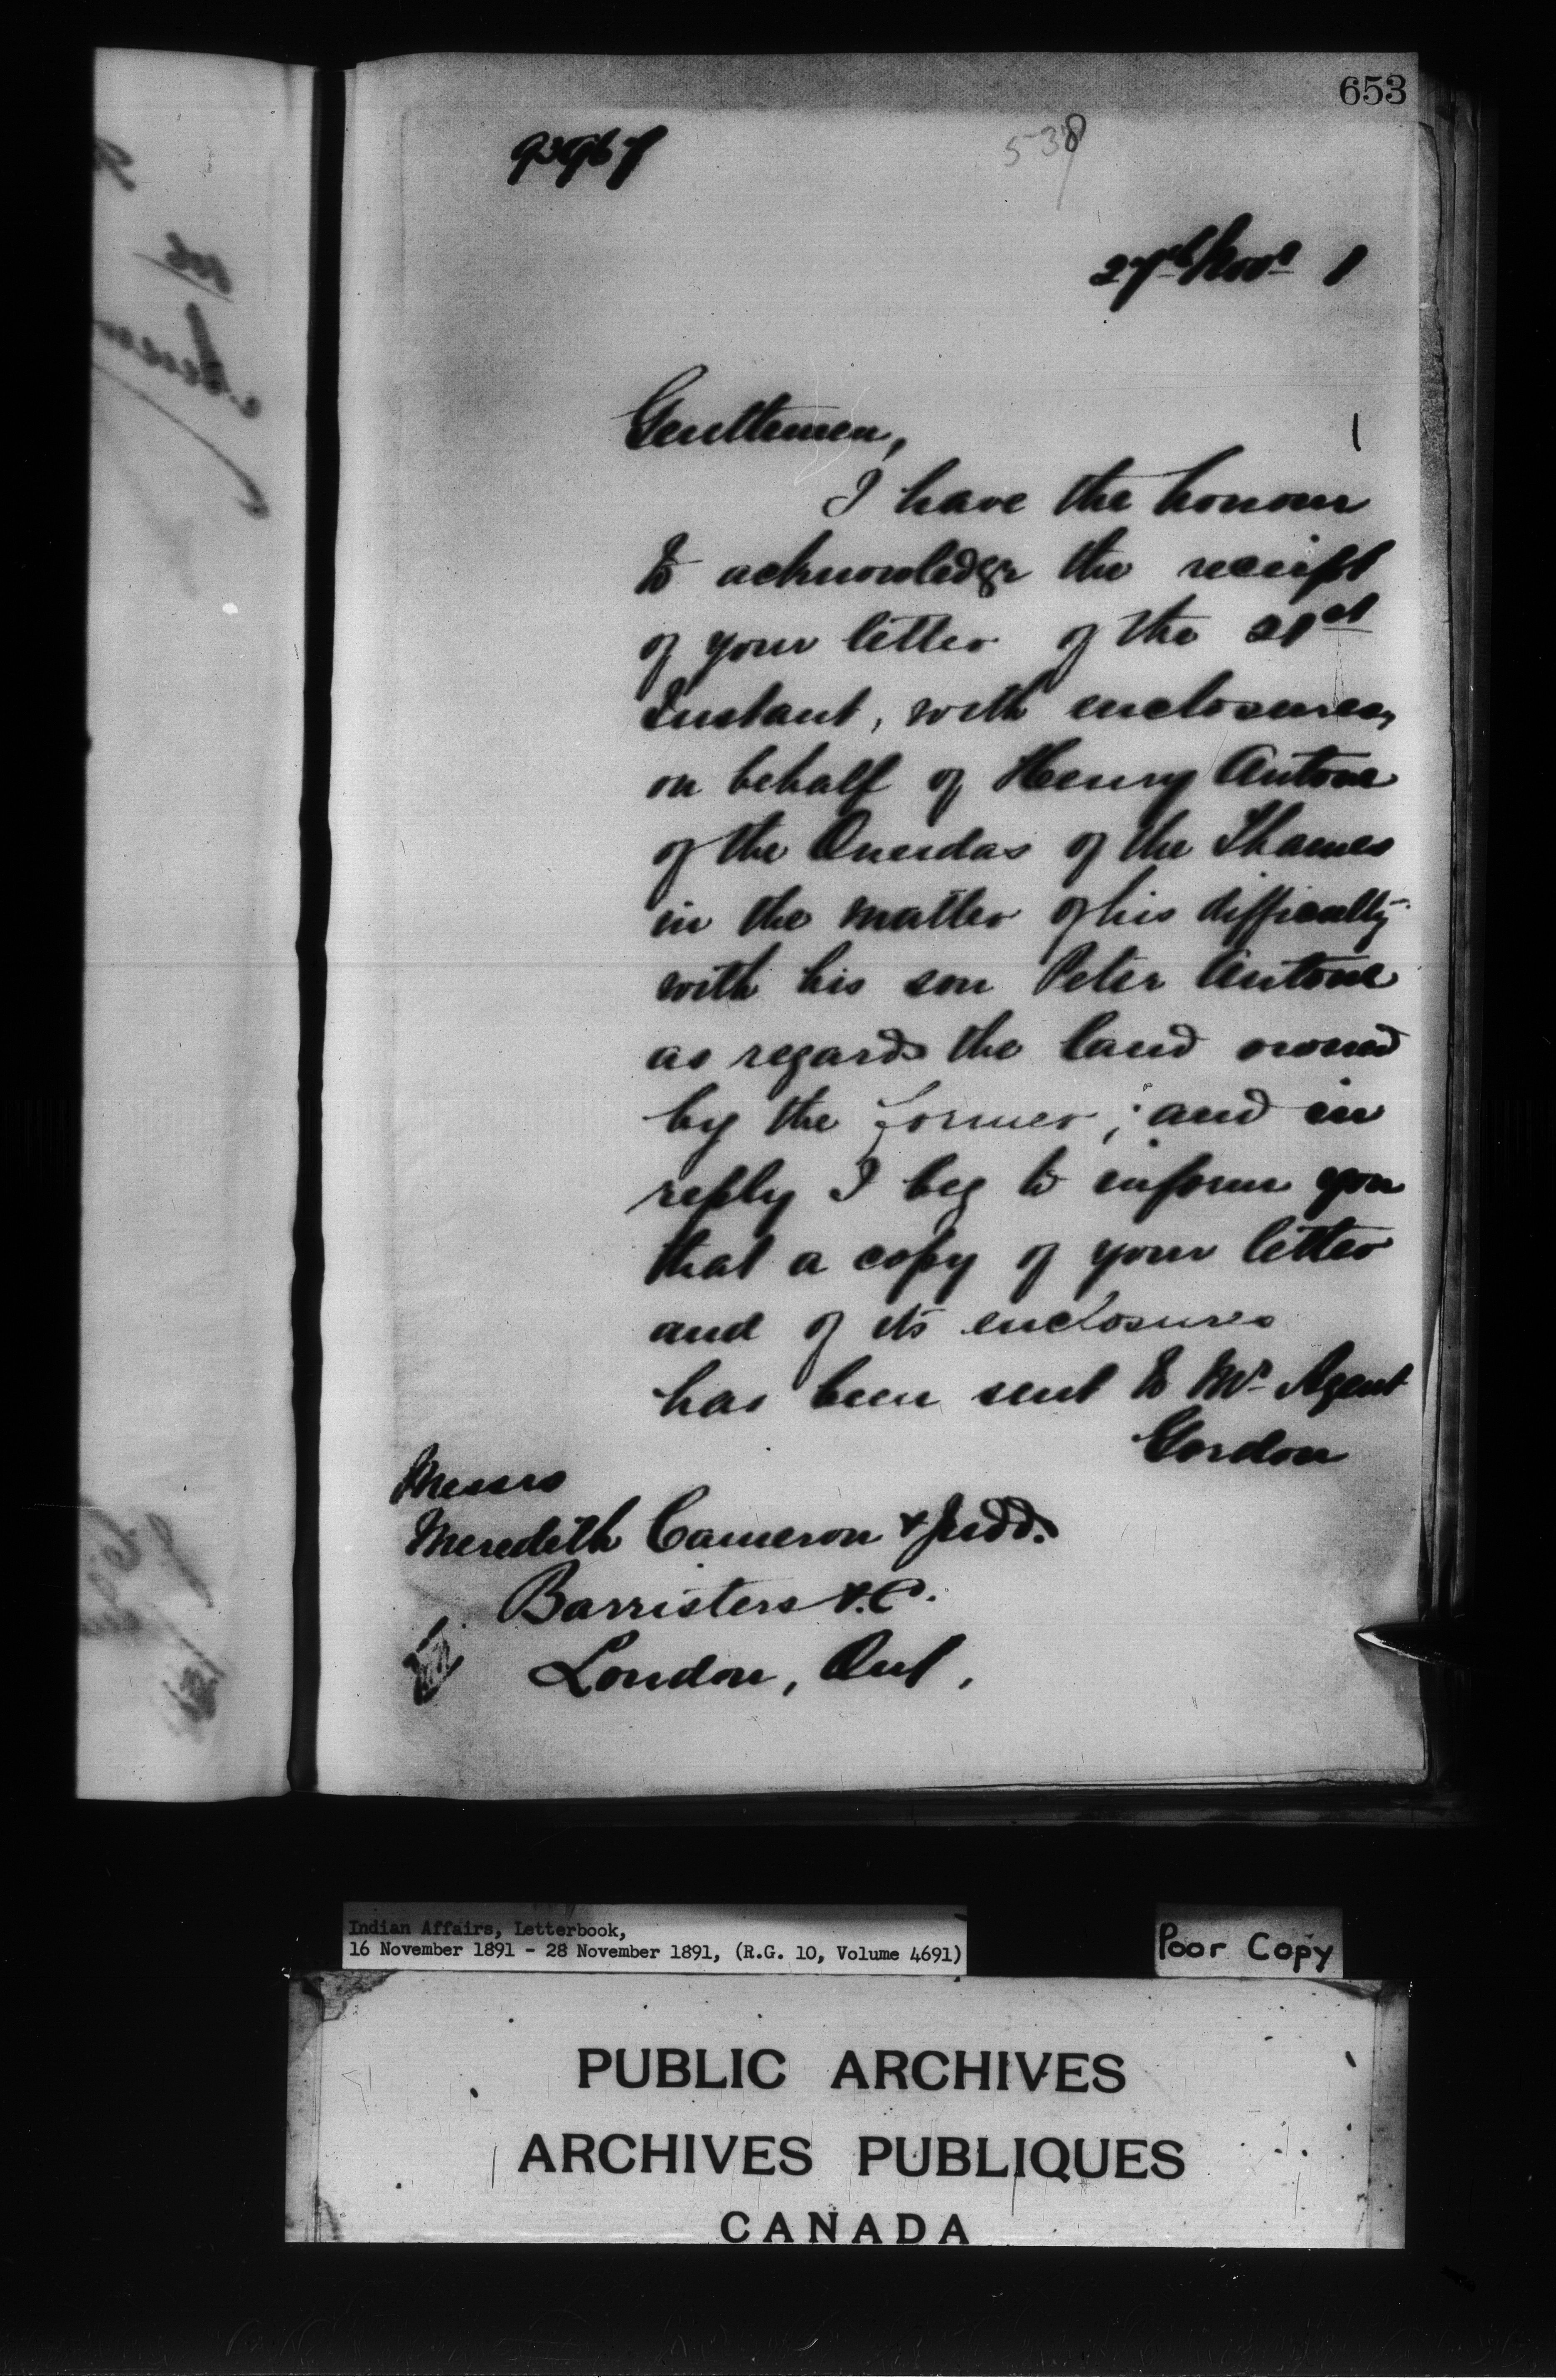 653
538
27th Novr 1
Gentlemen,
I have the honour
to acknowledge the receipt
of your letter of the 21st
Instant, with enclosures,
on behalf of Henry Antone
of the Oneidas of the Thames
in the matter of his difficulty
with his son Peter Antone
as regards the land owned
by the former; and in
reply I beg to inform you
that a copy of your letter
and of its enclosures
has been sent to Mr Agent
Gordon
Messrs
Meredith Cameron & Judd.
Barristers &.C.
London, Ont,
Indian Affairs, Letterbook,
16 November 1891 - 28 November 1891, (R.G. 10, Volume 4691)
Poor Copy
PUBLIC ARCHIVES
ARCHIVES PUBLIQUES
CANADA